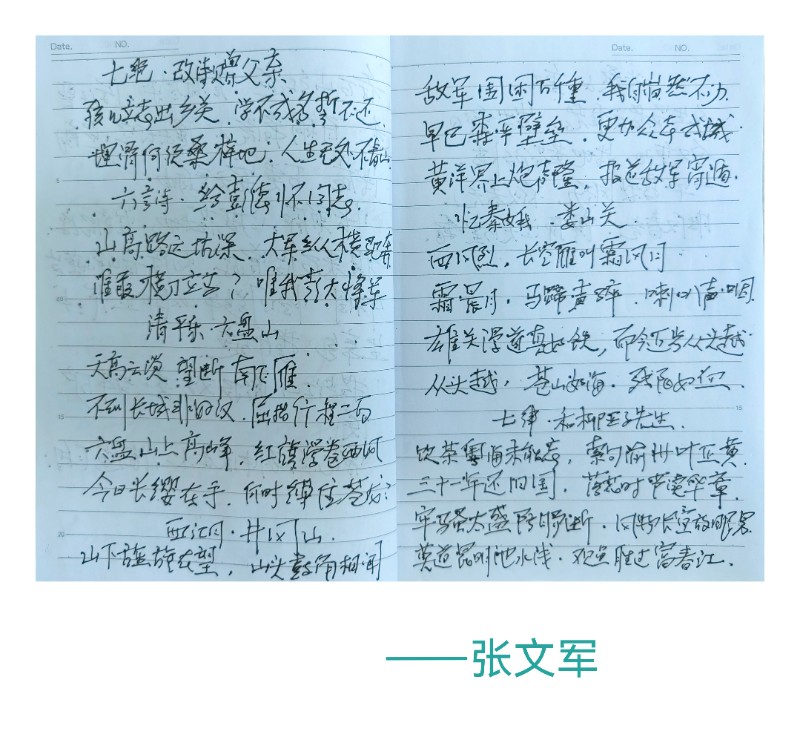 Date.
NO.
七绝·改诗赠父亲
孩儿立志出乡关，学不成名誓不还
埋骨何须桑梓地，人生无处不青山
六言诗·给彭德怀同志
山高路远坑深，大军纵横驰奔
谁敢横刀立马？唯我彭大将军
清平乐 六盘山
天高云淡 望断南飞雁
不到长城非好汉，屈指行程二万
六盘山上高峰，红旗漫卷西风
今日长缨在手，何时缚住苍龙？
西江月·井冈山
山下旌旗在望，山头鼓角相闻
Date.
NO.
敌军围困万千重，我自岿然不动
早已森严壁垒，更加众志成城
黄洋界上炮声隆，报道敌军宵遁
忆秦娥 娄山关
西风烈，长空雁叫霜晨月
霜晨月，马蹄声碎，喇叭声咽
雄关漫道真如铁，而今迈步从头越
从头越，苍山如海，残阳如血
七律·和柳亚子先生
饮茶粤海未能忘，索句渝州叶正黄
三十一年还旧国，落花时节读华章
牢骚太盛防肠断，风物长宜放眼量
莫道昆明池水浅，观鱼胜过富春江
——张文军